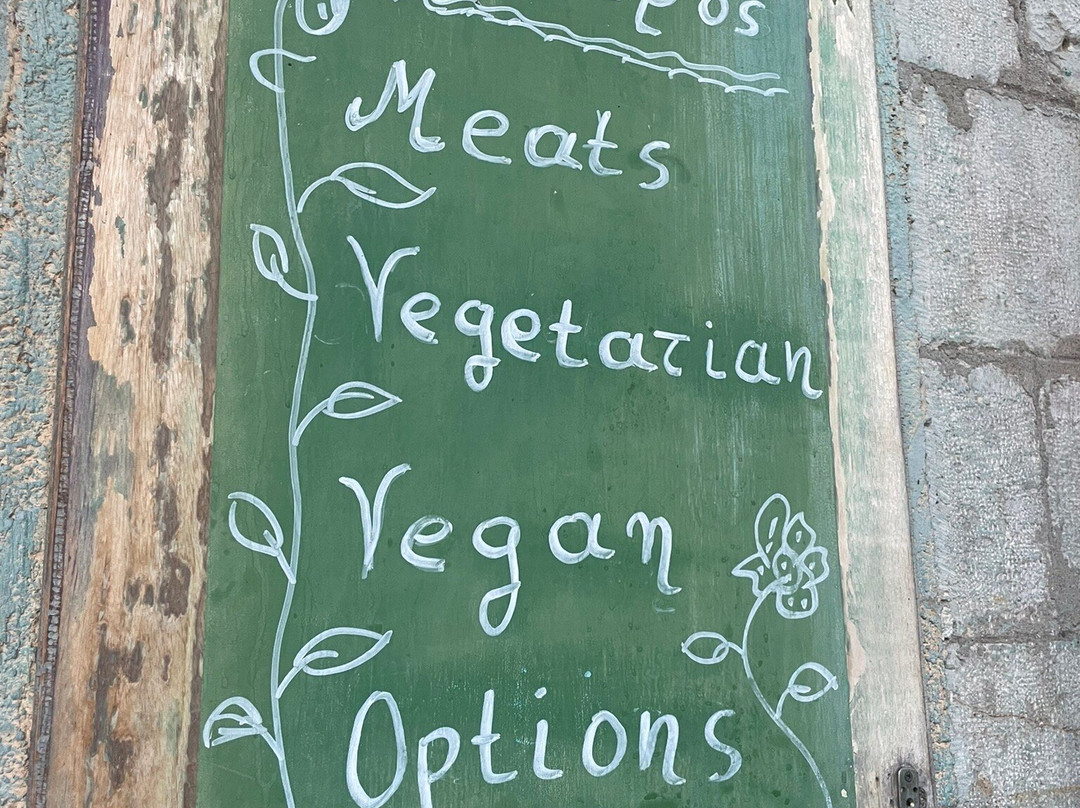 Meats
Vegetarian
Vegan
Options